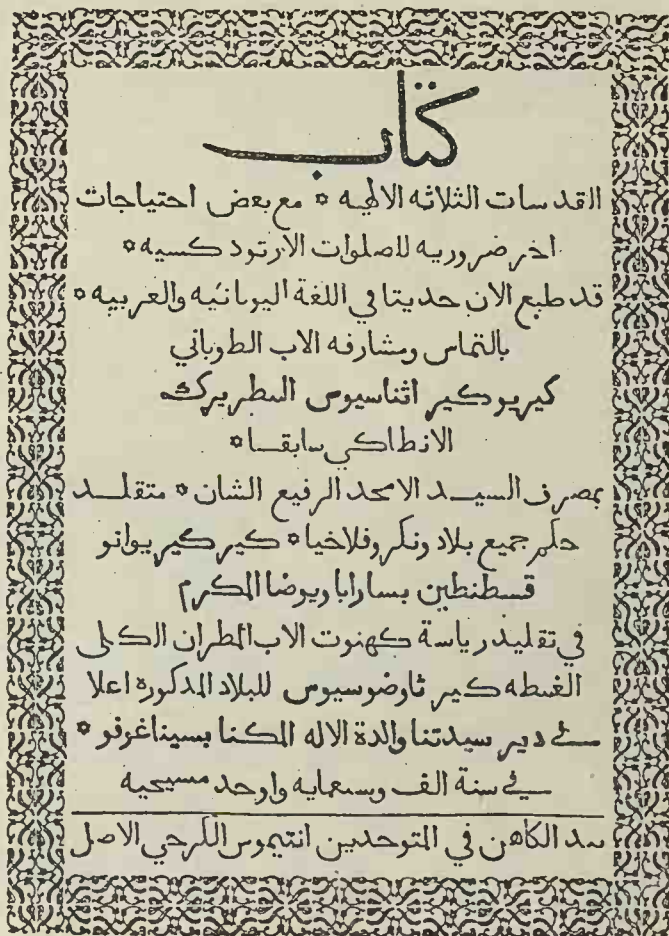 كتاب
القدسات الثلاثه الالهيه ۞ مع بعض احتياجات
اخر ضروريه للصلوات الارتودكسيه ۞
قد طبع الان حديتا في اللغة اليونانيه والعربيه ۞
بالتماس ومشارفه الاب الطوباني
كيريوكير اثناسيوس البطريرك
الانطاكي سابقا ۞
بمصرف السيد الامجد الرفيع الشان ۞ متقلد
حكم جميع بلاد ونكروفلاخيا ۞ كير كير يوانو
قسطنطين بساراباويوضا المكرم
في تقليد رياسة كهنوت الاب المطران الكلى
الغبطه كير ثاوضوسيوس للبلاد المذكوره اعلا
في دير سيدتنا والدة الاله المكنا بسيناغوفو ۞
في سنة الف وسبعمايه واوحد مسيحيه
بيد الكاهن في المتوحدين انتيموس الكرجي الاصل